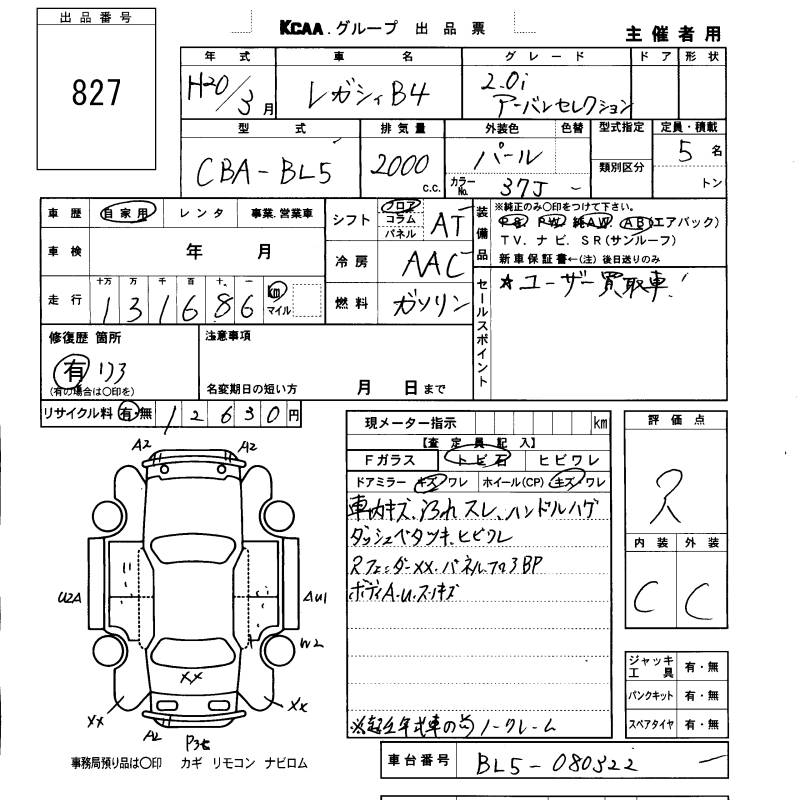 出品番号
827
KCAA.グループ 出品票
主催者用
年式 車名 グレード ドア 形状
H20/3月 レガシィB4 2.0i
アーバンセレクション
型式 排気量 外装色 色替 型式指定 定員・積載
CBA-BL5 2000 c.c. パール 5名
類別区分
カラーNo. 37J - トン
車歴 自家用 レンタ 事業.営業車
シフト フロア コラム パネル AT
装備品 ※純正のみ○印をつけて下さい。
PS. PW. 純AW. AB(エアバック)
TV. ナビ. SR(サンルーフ)
新車保証書←(注) 後日送りのみ
車検 年 月
冷房 AAC
走行 十万 万 千 百 十 一
131686 km マイル
燃料 ガソリン
セールスポイント
☆ユーザー買取車!
修復歴 箇所
有 リフ3
(有の場合は○印を)
注意事項
名変期日の短い方 月 日まで
リサイクル料 有・無 12630円
現メーター指示 km
【査定員記入】
Fガラス トビ石 ヒビワレ
ドアミラー キズ・ワレ ホイール(CP) キズ・ワレ
車内キズ、汚れ スレ、ハンドルハゲ
ダッシュベタツキ、ヒビワレ
Rフェンダーxx.パネルフロ3BP
ボディA.u.スリキズ
ノークレーム
評価点
内装 外装
C C
ジャッキ工具 有・無
パンクキット 有・無
スペアタイヤ 有・無
A2 A2
U2A AU1
W2
XX
XX XX
A2
事務局預り品は○印 カギ リモコン ナビロム
車台番号 BL5-080322